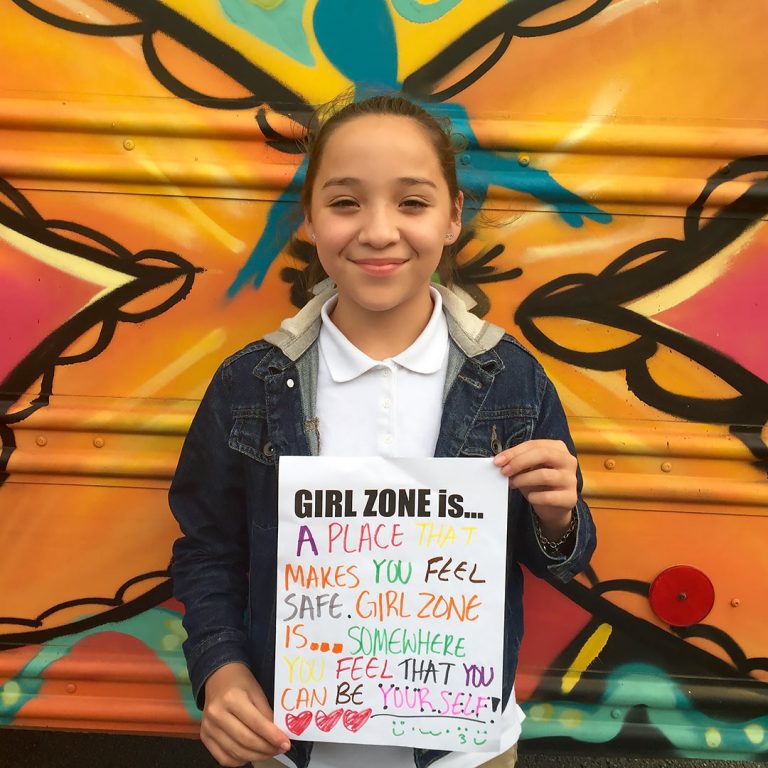 GIRL ZONE is...
A PLACE THAT
MAKES YOU FEEL
SAFE. GIRL ZONE
IS... SOMEWHERE
YOU FEEL THAT YOU
CAN BE YOURSELF!